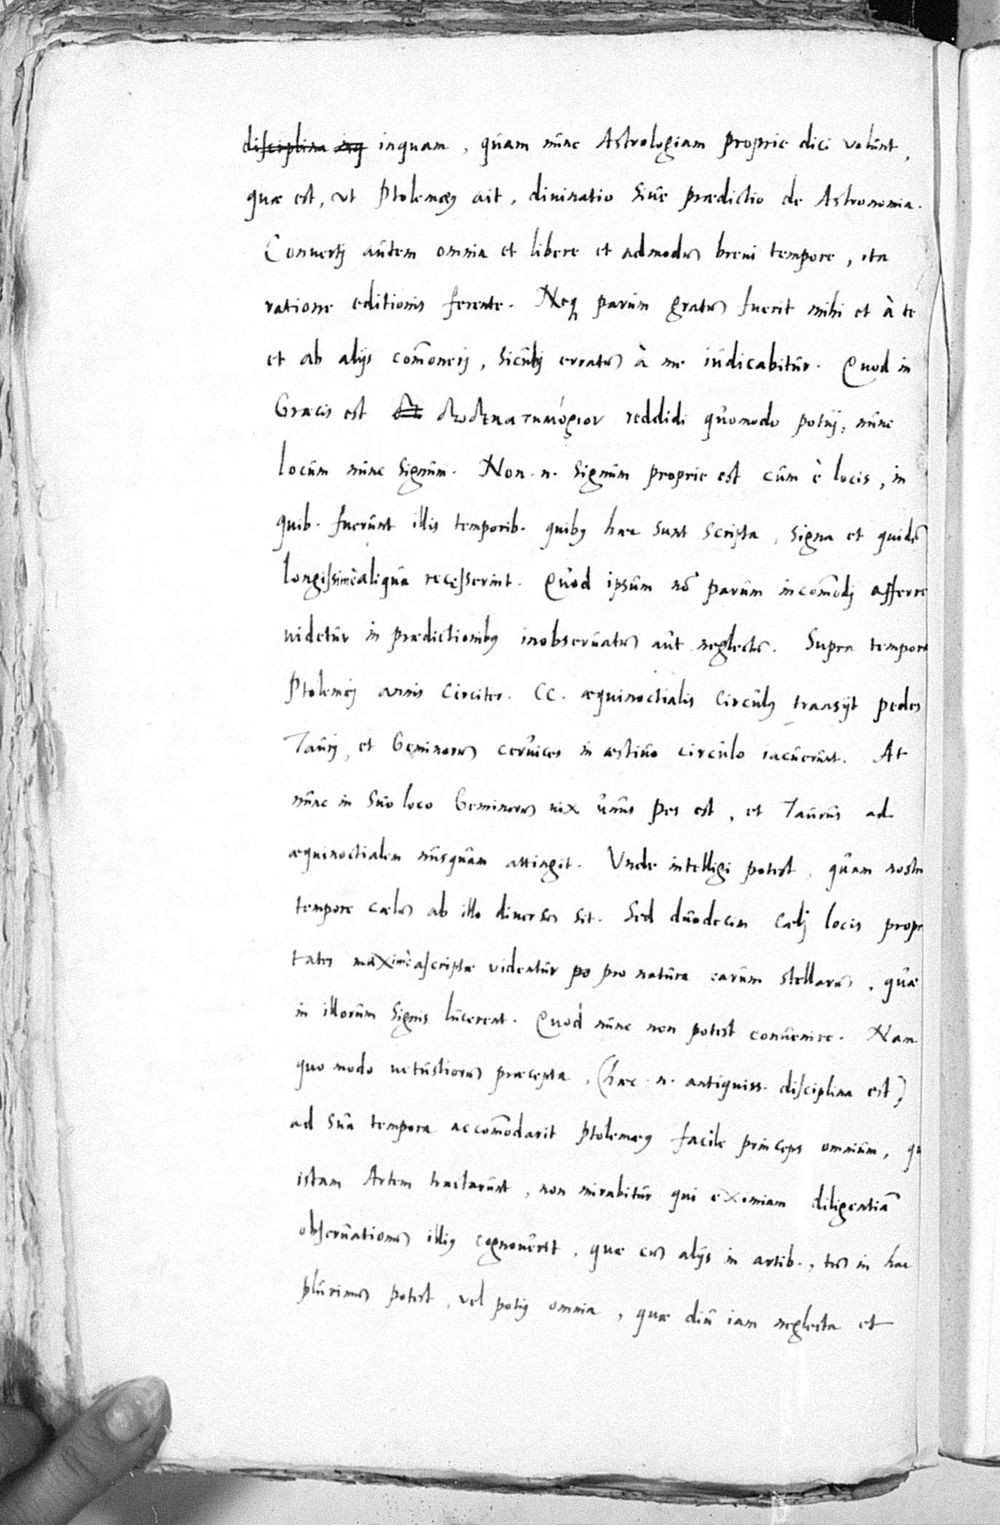 disciplina inq inquam, quam nunc Astrologiam proprie dici volunt,
quæ est, ut Ptolemæus ait, divinatio sive prædictio de Astronomia.
Converti autem omnia et libere et admodum breui tempore, ita
ratione editionis ferente. Neq parum gratum fuerit mihi et à te
et ab alijs com̄oneri, sicubi erratum à me iudicabitur. Quod in
Græcis est δωδεκατημόριον reddidi quomodo potui, nunc
locum nunc signum. Non .n. signum proprie est cum è locis, in
quib. fuerunt illis temporib. quibus hæc sunt scripta, signa et quidē
longissimè aliqua recesserint. Quod ipsum nō parum incom̄odi afferre
uidetur in prædictionibus inobseruatum aut neglectum. Supra tempora
Ptolemei annis circiter. CC. æquinoctialis circulus transijt pedes
Tauri, et Geminorum ceruices in æstiuo circulo iacuerunt. At
nunc in suo loco Geminorum uix unus pes est, et Taurus ad
æquinoctialem nusquam attingit. Unde intelligi potest, quam nostro
tempore cælum ab illo diuersum sit. Sed duodecim cæli locis propr
tates maximè ascriptæ videntur po pro natura earum stellarum, quæ
in illorum signis lucerent. Quod nunc non potest conuenire. Nam
quo modo uetustiorum præcepta, (hæc .n. antiquiss. disciplina est)
ad sua tempora accom̄odarit Ptolemæus facile princeps omnium, qu
istam Artem tractarunt, non mirabitur qui eximiam diligentiā
obseruationum illius cognouerit, quæ cum alijs in artib., tum in hac
plurimum potest, vel potius omnia, quæ diu iam neglecta et